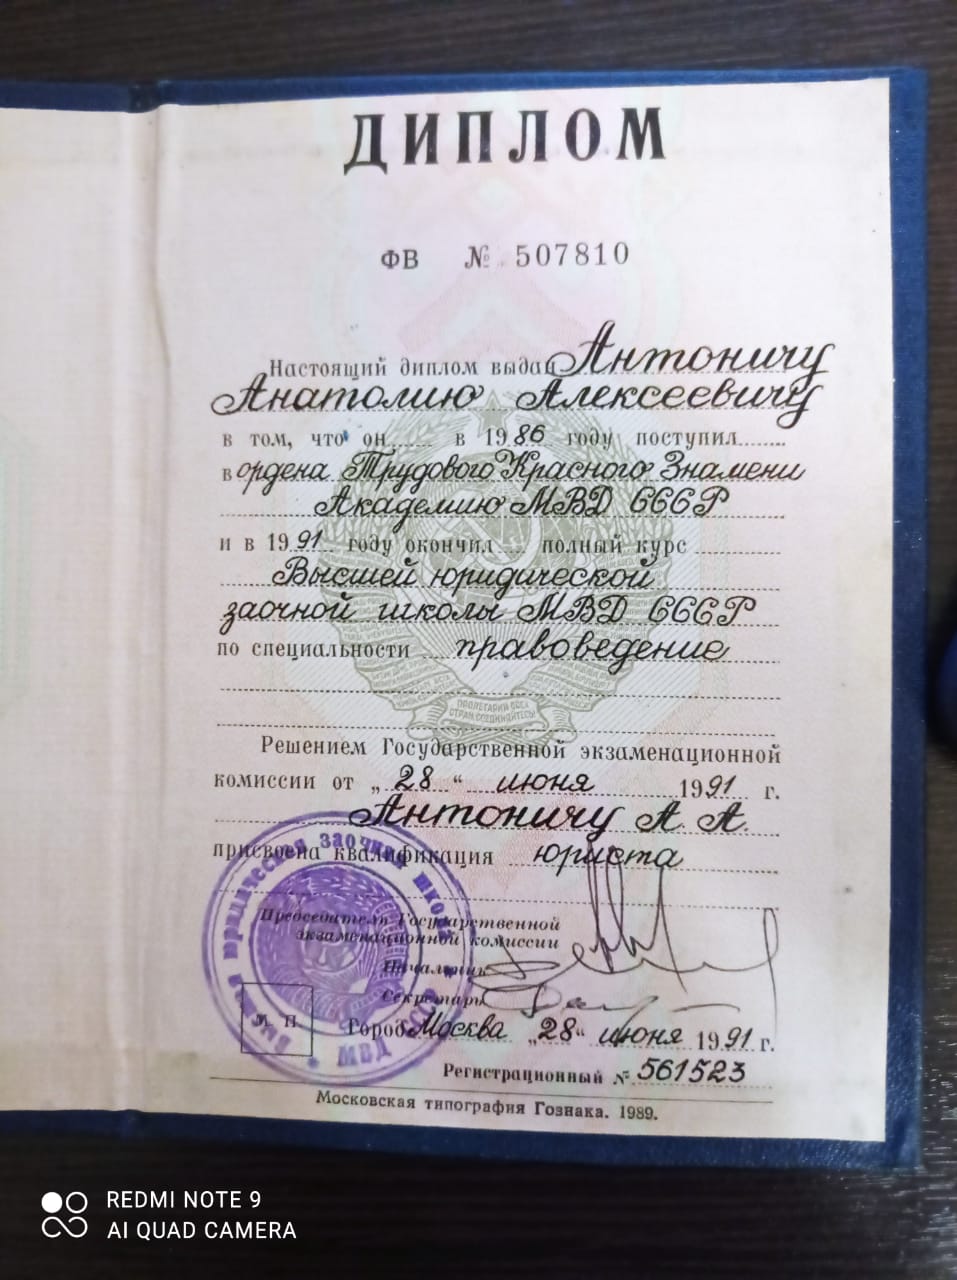 ДИПЛОМ
ФВ № 507810
Настоящий диплом выдан Антоничу
Анатолию Алексеевичу
в том, что он в 1986 году поступил
в ордена Трудового Красного Знамени
Академию МВД СССР
и в 1991 году окончил полный курс
Высшей юридической
заочной школы МВД СССР
по специальности правоведение
ПРОЛЕТАРИИ ВСЕХ
СТРАН, СОЕДИНЯЙТЕСЬ!
Решением Государственной экзаменационной
комиссии от „28“ июня 1991 г.
Антоничу А. А.
присвоена квалификация юриста
Высшая юридическая заочная школа * МВД СССР *
Председатель Государственной
экзаменационной комиссии
Начальник
Секретарь
М. П.
Город Москва „28“ июня 1991 г.
Регистрационный № 561523
Московская типография Гознака. 1989.
REDMI NOTE 9
AI QUAD CAMERA